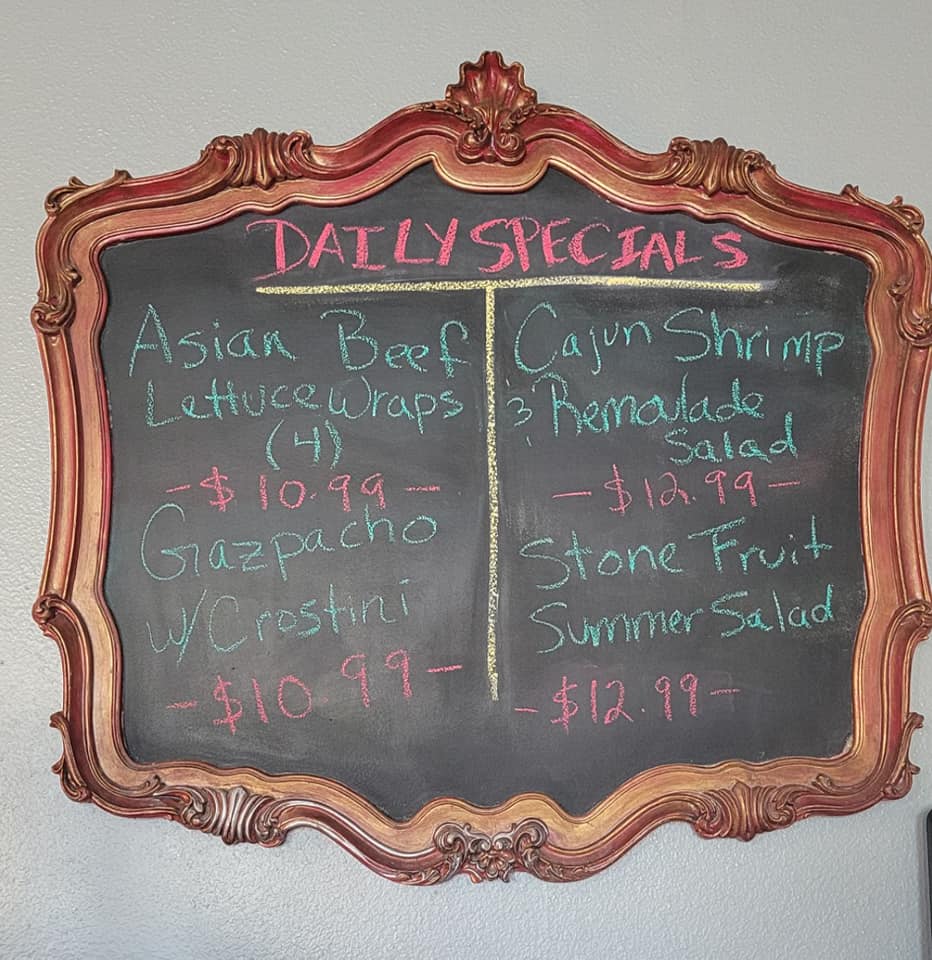 DAILY SPECIALS
Asian Beef
Lettuce Wraps
(4)
-$10.99-
Gazpacho
w/Crostini
-$10.99-
Cajun Shrimp
& Remoulade
Salad
-$12.99-
Stone Fruit
Summer Salad
-$12.99-